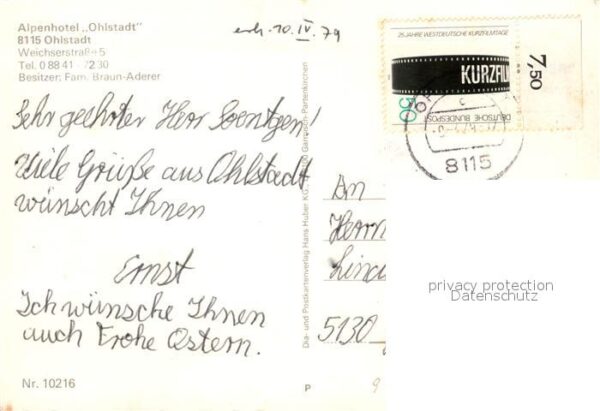 Alpenhotel „Ohlstadt"
8115 Ohlstadt
Weichserstraße 5
Tel. 0 88 41 - 72 30
Besitzer: Fam. Braun-Aderer
erh. 10. IV. 79
25 JAHRE WESTDEUTSCHE KURZFILMTAGE
KURZFILM
50
DEUTSCHE BUNDESPOST
7,50
c
8115
Sehr geehrter Herr Soentgen!
Viele Grüße aus Ohlstadt
wünscht Ihnen
Ernst
Ich wünsche Ihnen
auch Frohe Ostern.
Nr. 10216
Dia- und Postkartenverlag Hans Huber KG, Garmisch-Partenkirchen
P
An
Herrn
5130
9
privacy protection
Datenschutz